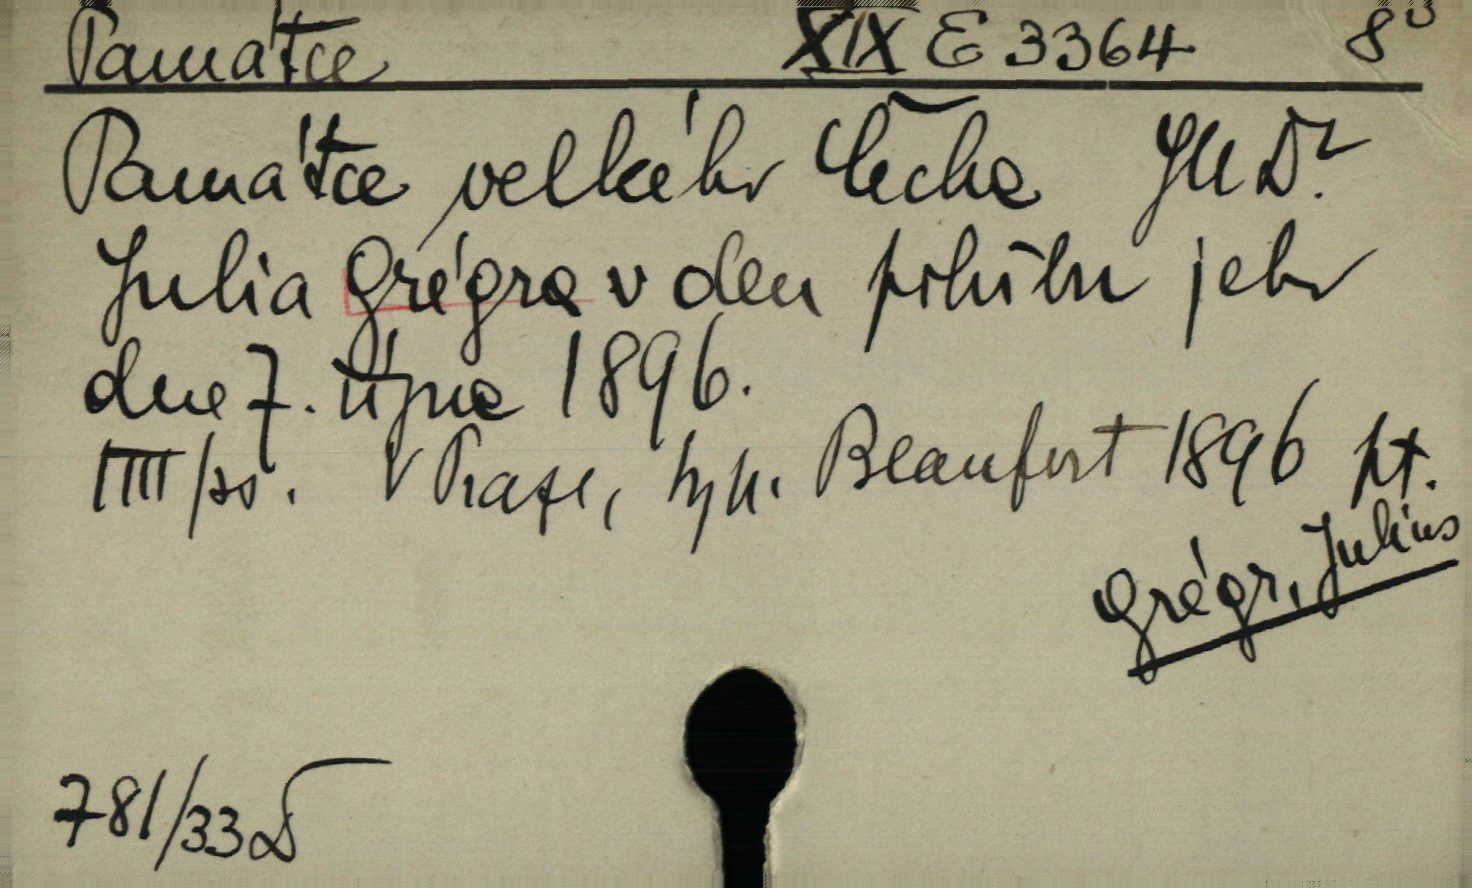 Památce XIX E 3364 8°
Památce velkého Čecha JUDr.
Julia Grégra v den pohřbu jeho
dne 7. října 1896.
V Praze, typ. Beaufort 1896 pt.
Grégr, Julius
781/33 D